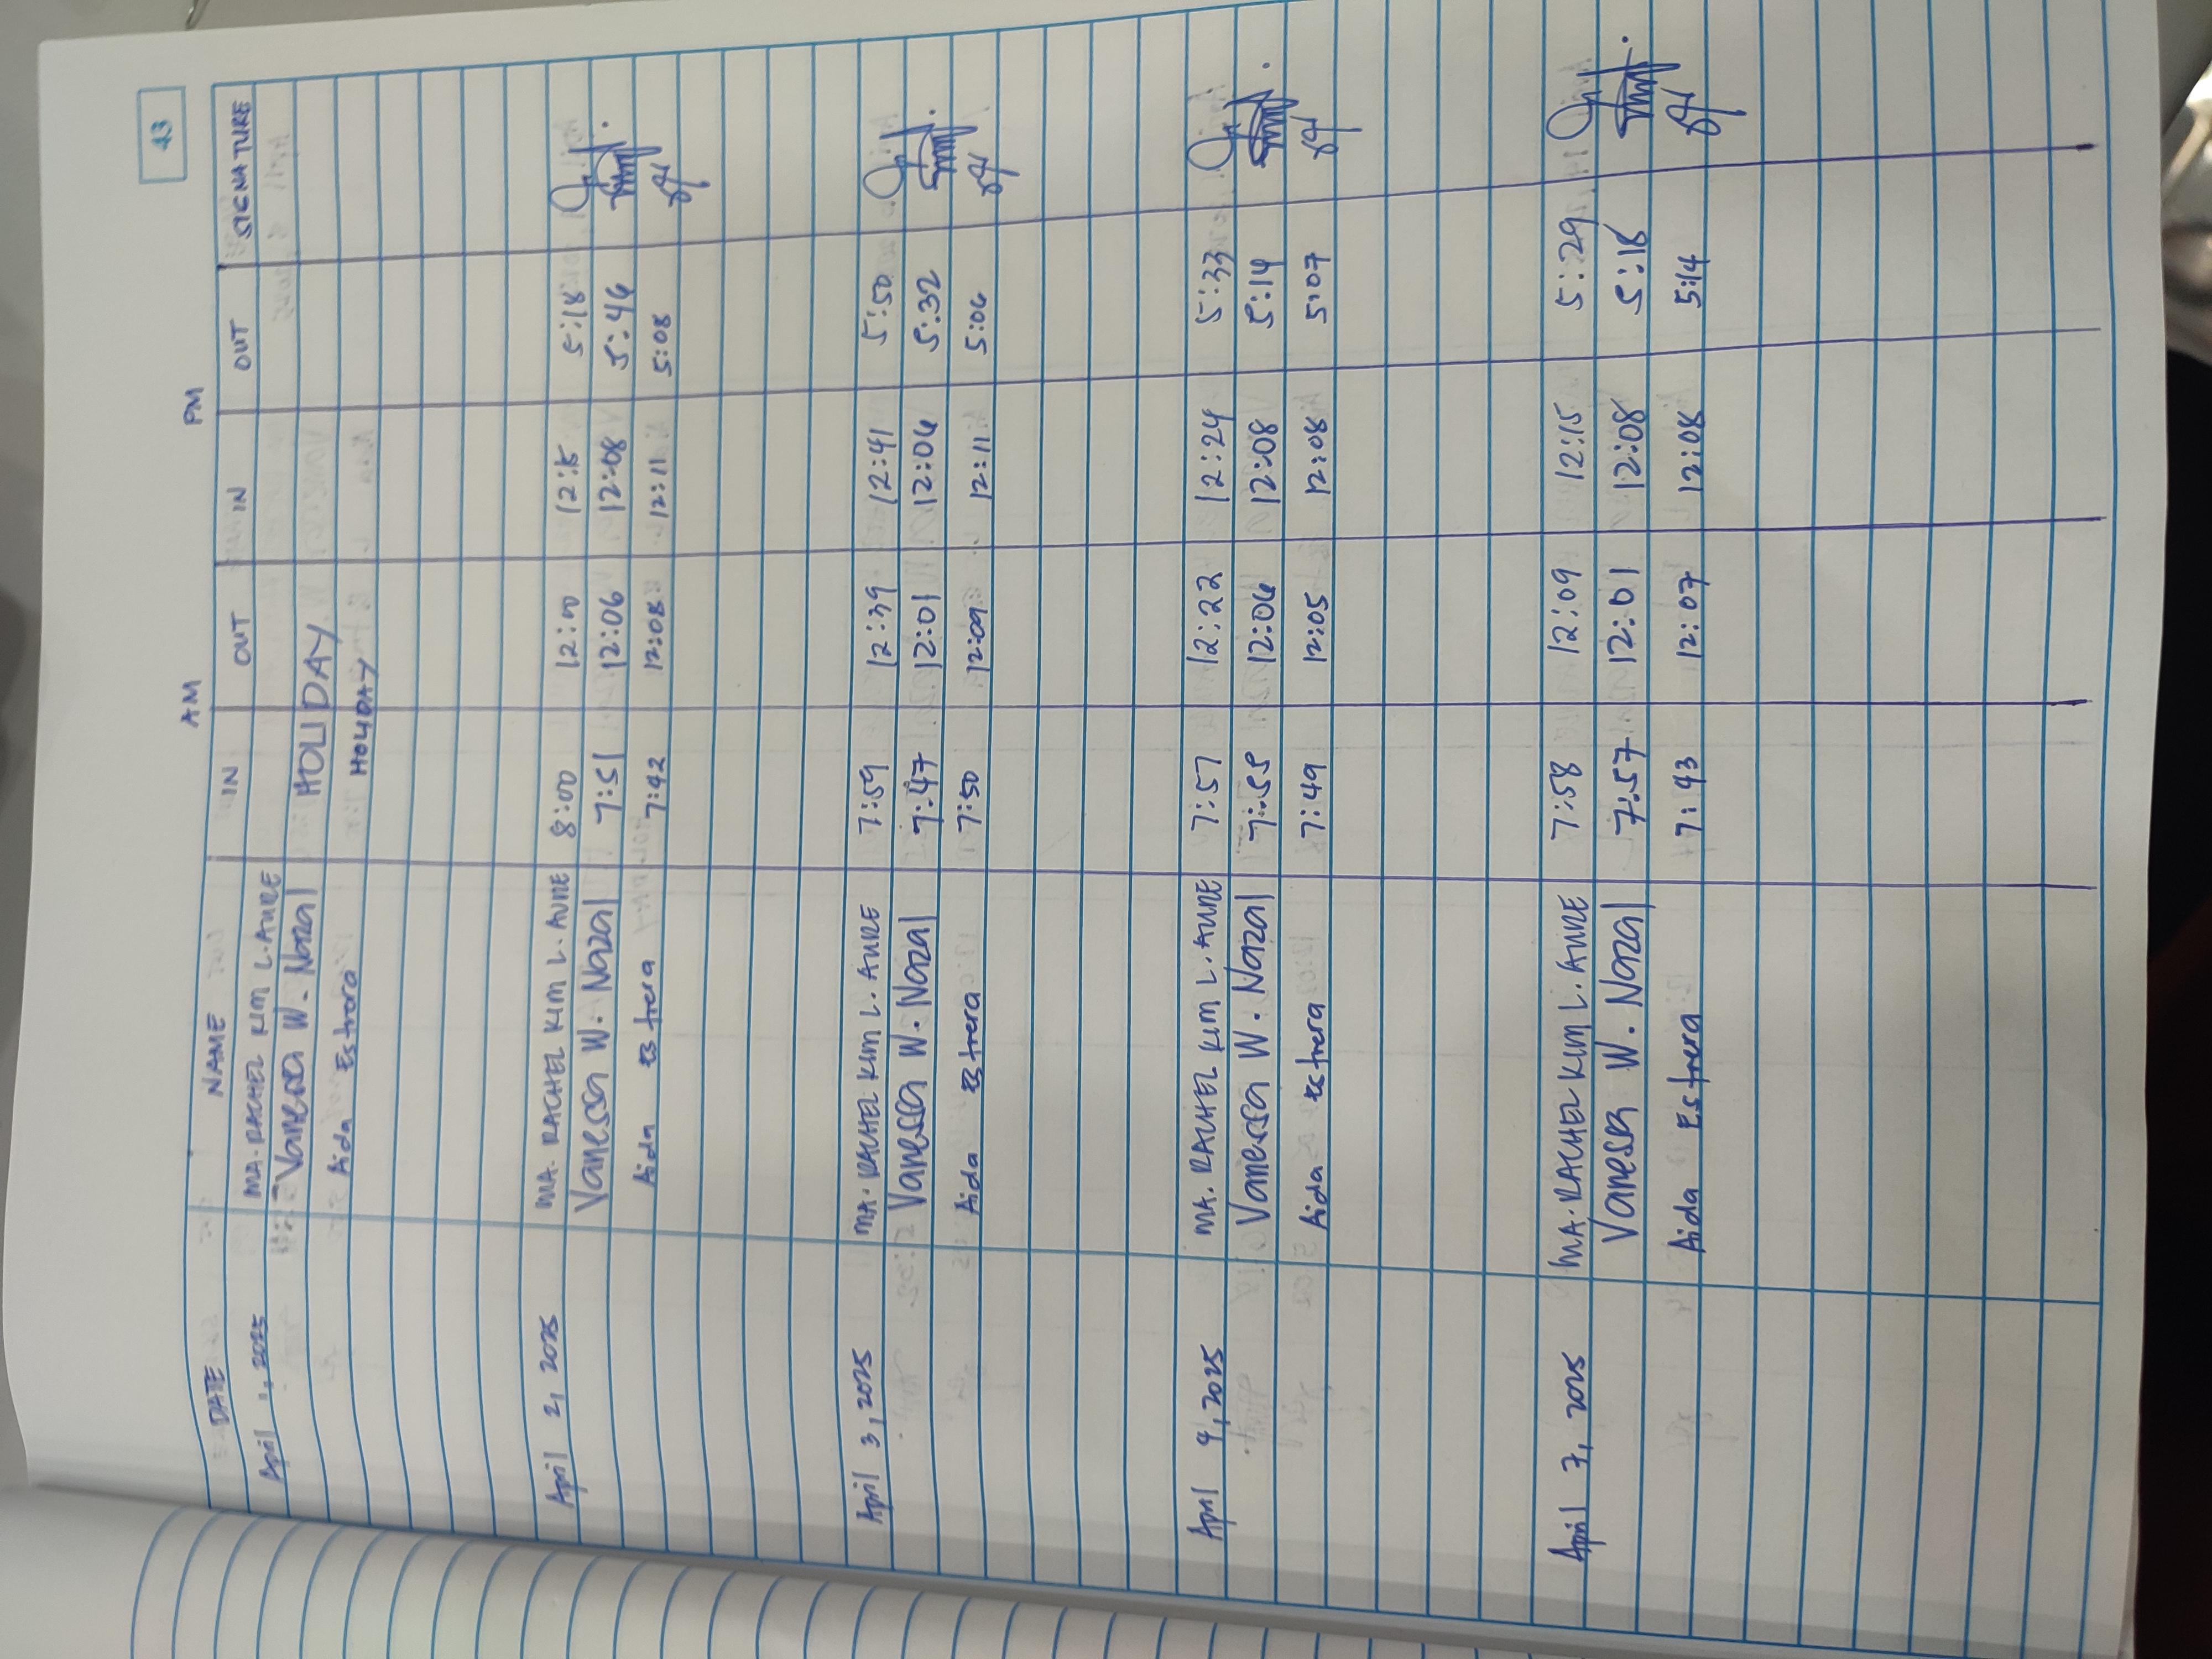 43
AM PM
DATE NAME IN OUT IN OUT SIGNATURE
April 1, 2025 MA. RACHEL KIM L. AUNRE
Vanessa W. Nazal HOLIDAY
Aida Estrera HOLIDAY
April 2, 2025 MA. RACHEL KIM L. AUNRE 8:00 12:00 12:15 5:18
Vanessa W. Nazal 7:51 12:06 12:08 5:46
Aida Estrera 7:42 12:08 12:11 5:08
April 3, 2025 MA. RACHEL KIM L. AUNRE 7:59 12:39 12:41 5:50
Vanessa W. Nazal 7:47 12:01 12:06 5:32
Aida Estrera 7:50 12:09 12:11 5:06
April 4, 2025 MA. RACHEL KIM L. AUNRE 7:57 12:22 12:24 5:33
Vanessa W. Nazal 7:55 12:06 12:08 5:14
Aida Estrera 7:49 12:05 12:08 5:07
April 7, 2025 MA. RACHEL KIM L. AUNRE 7:58 12:09 12:15 5:29
Vanessa W. Nazal 7:57 12:01 12:08 5:18
Aida Estrera 7:43 12:07 12:08 5:14